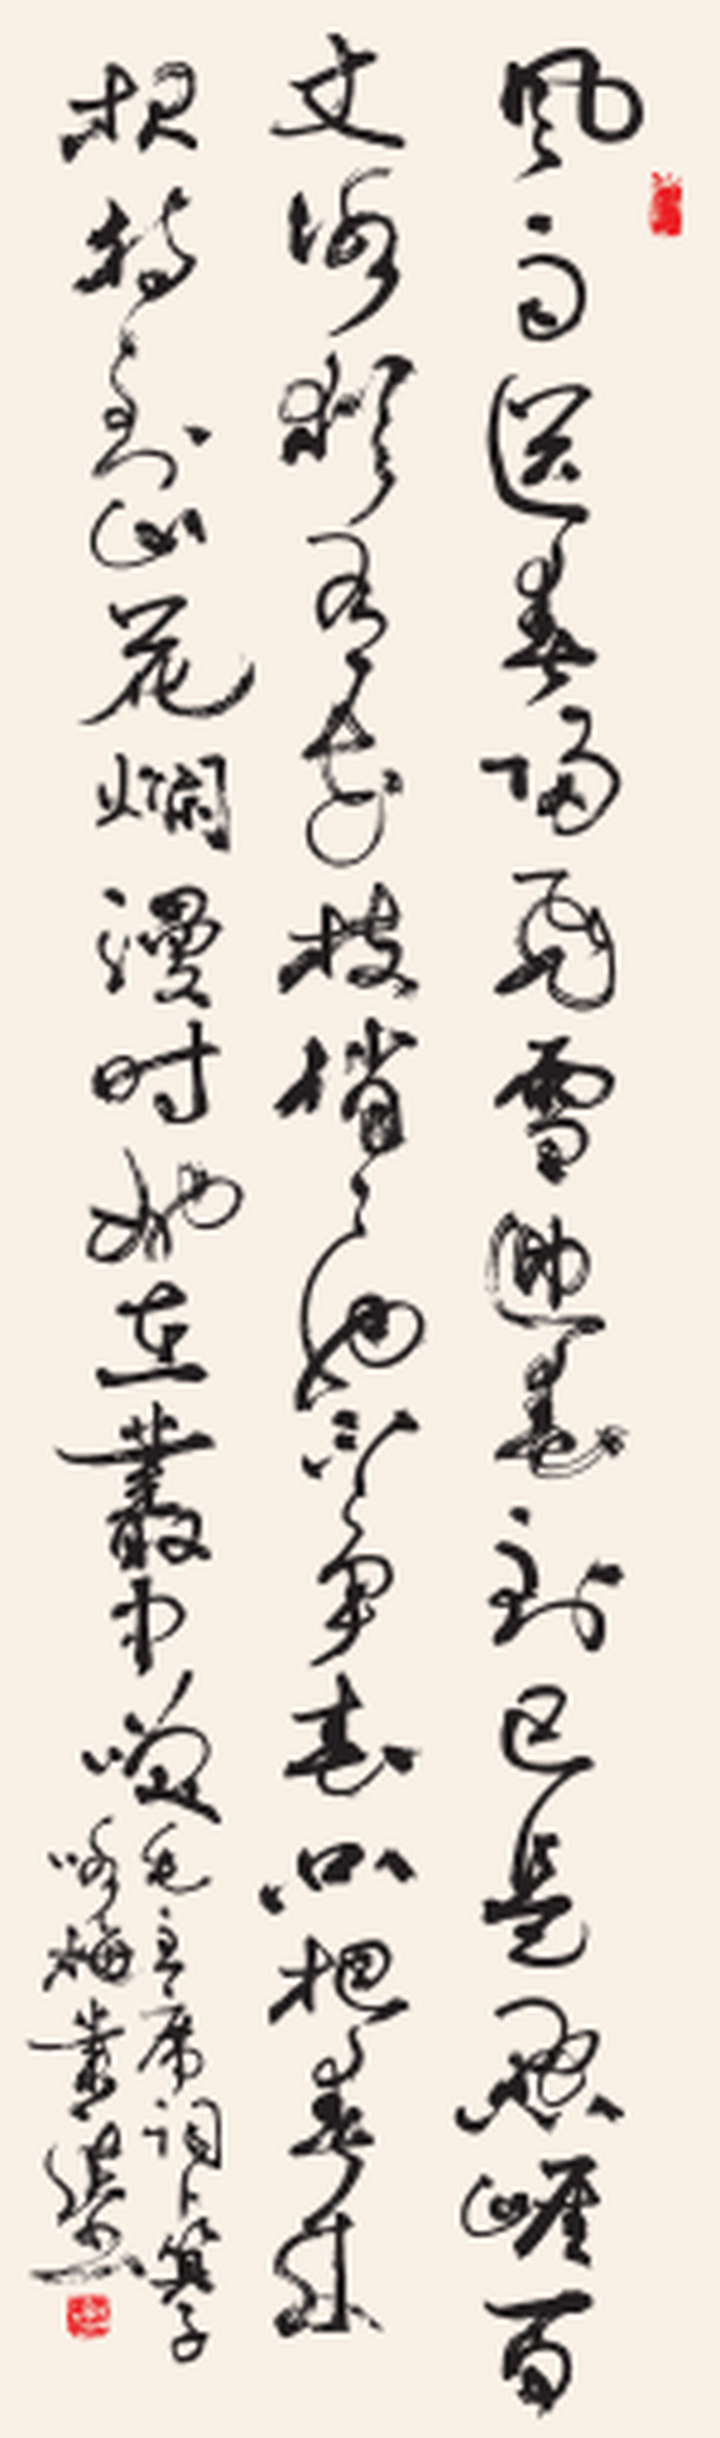 风雨送春归飞雪迎春到已是悬崖百
丈冰犹有花枝俏々也不争春只把春来
报待到山花烂漫时她在叢中笑
毛主席词卜算子
咏梅